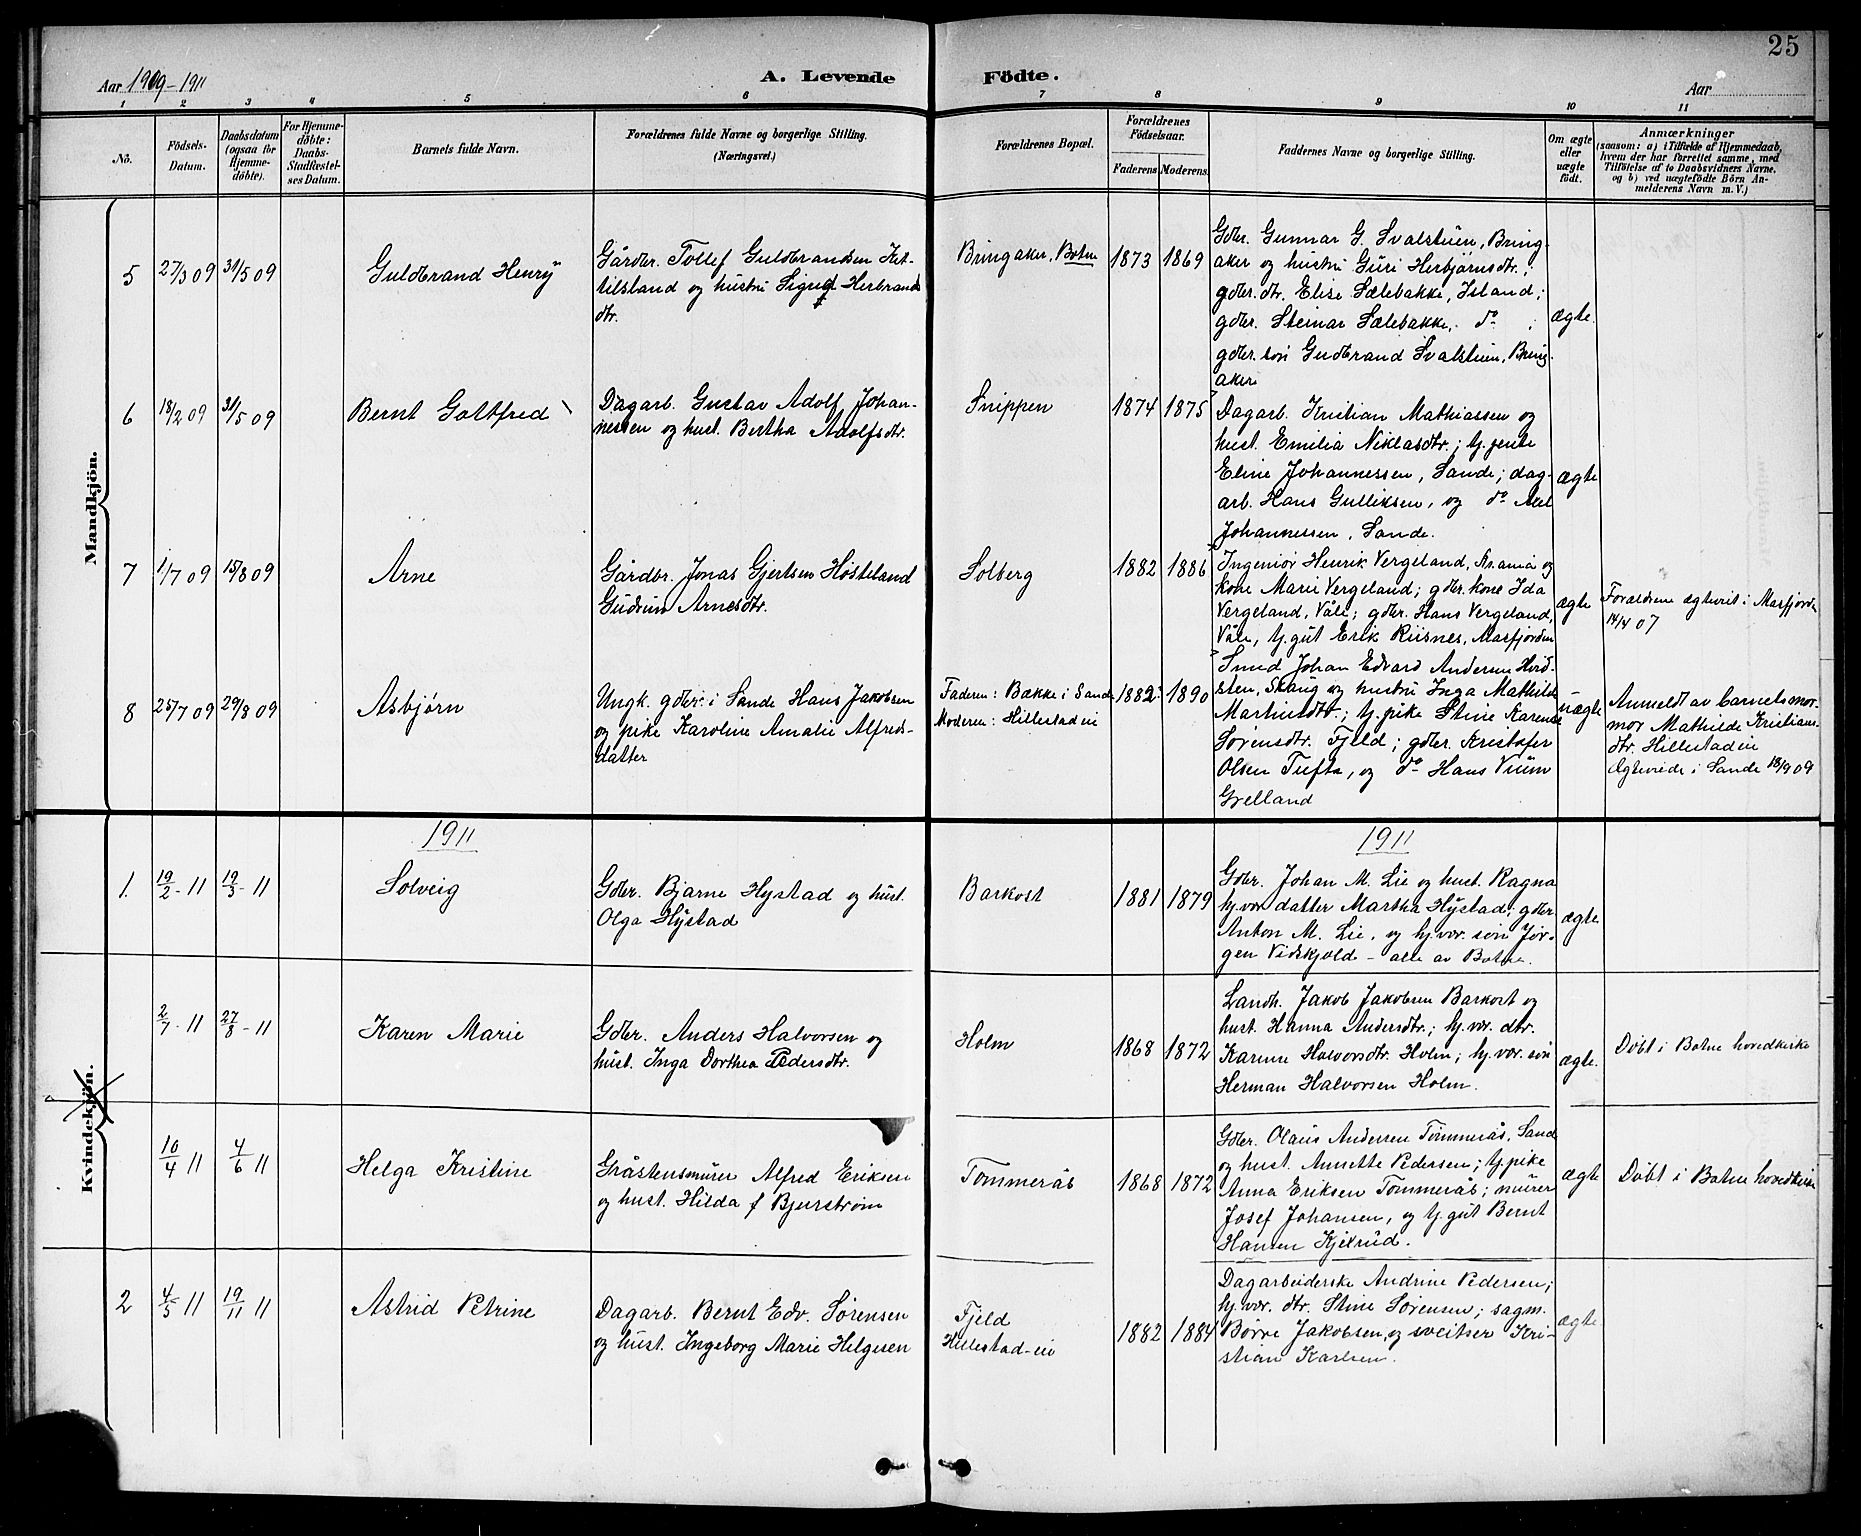 25
Aar 1909-1911
A. Levende Födte.
Aar
1 2 3 4 5 6 7 8 9 10 11
No.
Födsels-Datum.
Daabsdatum (ogsaa for Hjemme-döbte).
For Hjemme-döbte: Daabs-Stadfæstel-ses Datum.
Barnets fulde Navn.
Forældrenes fulde Navne og borgerlige Stilling. (Næringsvei.)
Forældrenes Bopæl.
Forældrenes Födselsaar.
Faderens Moderens.
Faddernes Navne og borgerlige Stilling.
Om ægte eller uægte födt.
Anmærkninger
(saasom: a) i Tilfælde af Hjemmedaab,
hvem der har forrettet samme, med
Tilföielse af to Daabsvidners Navne,
og b) ved uægtefödte Börn An-
melderens Navn m. V.)
Mandkjön.
5 27/3 09 31/5 09 Guldbrand Henry
Gårdbr. Tollef Guldbrandsen Ket-
tilsland og hustru Sigrid Herbrands
dtr.
Bringaker, Botne 1873 1869
Gdbr. Gunnar G. Svalstuen, Bring-
aker og hustru Guri Herbjørnsdtr.;
gdbr. dtr. Elise Sælebakke, Island;
gdbr. Steinar Sælebakke, do ;
gdbr. søn Gudbrand Svalstuen, Bring-
aker
ægte.
6 18/2 09 31/5 09 Bernt Gottfred
Dagarb. Gustav Adolf Johan-
nessen og hust. Bertha Adolfsdtr.
Snippen 1874 1875
Dagarb. Kristian Mathiassen og
hust. Emilia Niklasdtr.; tj. jente
Eline Johannessen, Sande; dag-
arb. Hans Gulliksen, og do Axel
Johannessen, Sande.
ægte
7 1/7 09 15/8 09 Arne
Gårdbr. Jonas Gjertsen Høsteland
Gudrun Arnesdtr.
Solberg 1882 1886
Ingeniør Henrik Vergeland, Kr.ania og
kone Marie Vergeland; gdbr. kone Ida
Vergeland, Våle; gdbr. Hans Vergeland,
Våle, tj. gut Erik Riisnes, Masfjorden
ægte
Forældrene ægteviet i Masfjorde
14/4 07
8 25/7 09 29/8 09 Asbjørn
Ungk. gdbr. i Sande Hans Jakobsen
og pike Karoline Amalie Alfreds-
datter
Faderen: Bække i Sande
Moderen: Hillestad eie
1882 1890
Smed Johan Edvard Andersen Hvid-
sten, Skoug og hustru Inga Mathilde
Martinsdtr.; tj. pike Stine Karense
Sørensdtr. Fjeld; gdbr. Kristofer
Olsen Tufte, og do Hans Vium
Grelland
uægte
Anmeldt av barnets mor-
mor Mathilde Kristians-
dtr. Hillestad eie
Ægteviede i Sande 18/9 09
1911 1911
Kvindekjön.
1. 19/2 - 11 19/3 - 11 Solveig
Gdbr. Bjarne Hystad og hust.
Olga Hystad
Barkost 1881 1879
Gdbr. Johan M. Lie og hust. Ragna
hj.vær. datter Martha Hystad; gdbr.
Anton M. Lie, og hj.vær. søn Jør-
gen Vidskjold - alle av Botne.
ægte
2/7 - 11 27/8 - 11 Karen Marie
Gdbr. Anders Halvorsen og
hust. Inga Dorthea Pedersdtr.
Holm 1868 1872
Landh. Jakob Jakobsen Barkost og
hust. Hanna Andersdtr.; hj.vær. dtr.
Karine Halvorsdtr. Holm; hj.vær. søn
Herman Halvorsen Holm.
ægte.
Døbt i Botne hovedkirke
10/4 11 4/6 11 Helga Kristine
Gråstensmurer Alfred Eriksen
og hust. Hilda f Bjurstrøm
Tommerås 1868 1872
Gdbr. Olaus Andersen Tommerås, Sande
og hust. Annette Pedersen; tj. pike
Anna Eriksen Tommerås; murer
Josef Johansen, og tj. gut Bernt
Hansen Kjexrud.
ægte
Døbt i Botne hovedkirke
2 4/5 11 19/11 11 Astrid Petrine
Dagarb. Bernt Edv. Sørensen
og hust. Ingeborg Marie Helgesen
Fjeld
Hillestad-eie
1882 1884
Dagarbeiderske Andrine Pedersen;
hj.vær. dtr. Stine Sørensen; sagm.
Børre Jakobsen, og sveitser Kri-
stian Karlsen.
ægte